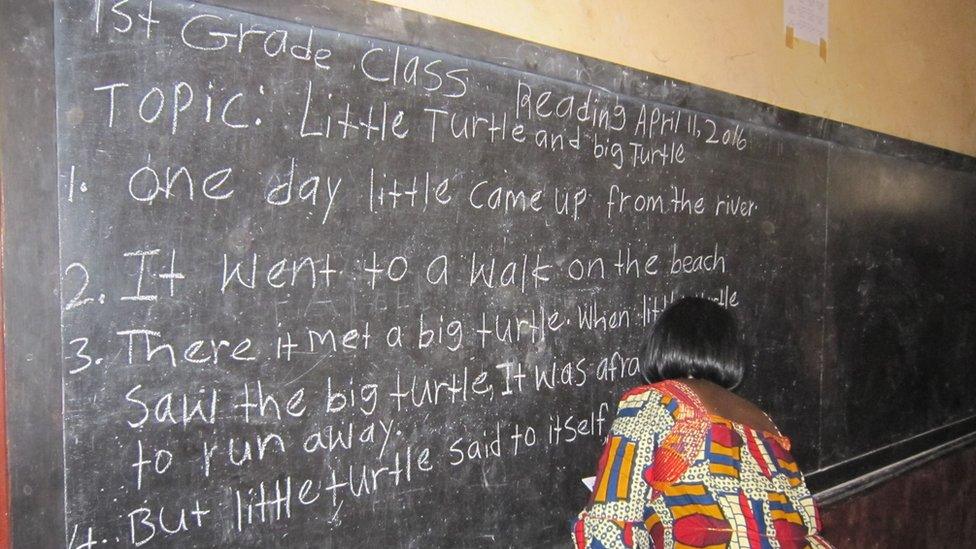 1st Grade Class Reading April 11, 2016
Topic: Little Turtle and big Turtle
1. One day little came up from the river.
2. It went to a walk on the beach
3. There it met a big turtle. When little turtle
Saw the big turtle, It was afra
to run away.
4. But little turtle said to itself,